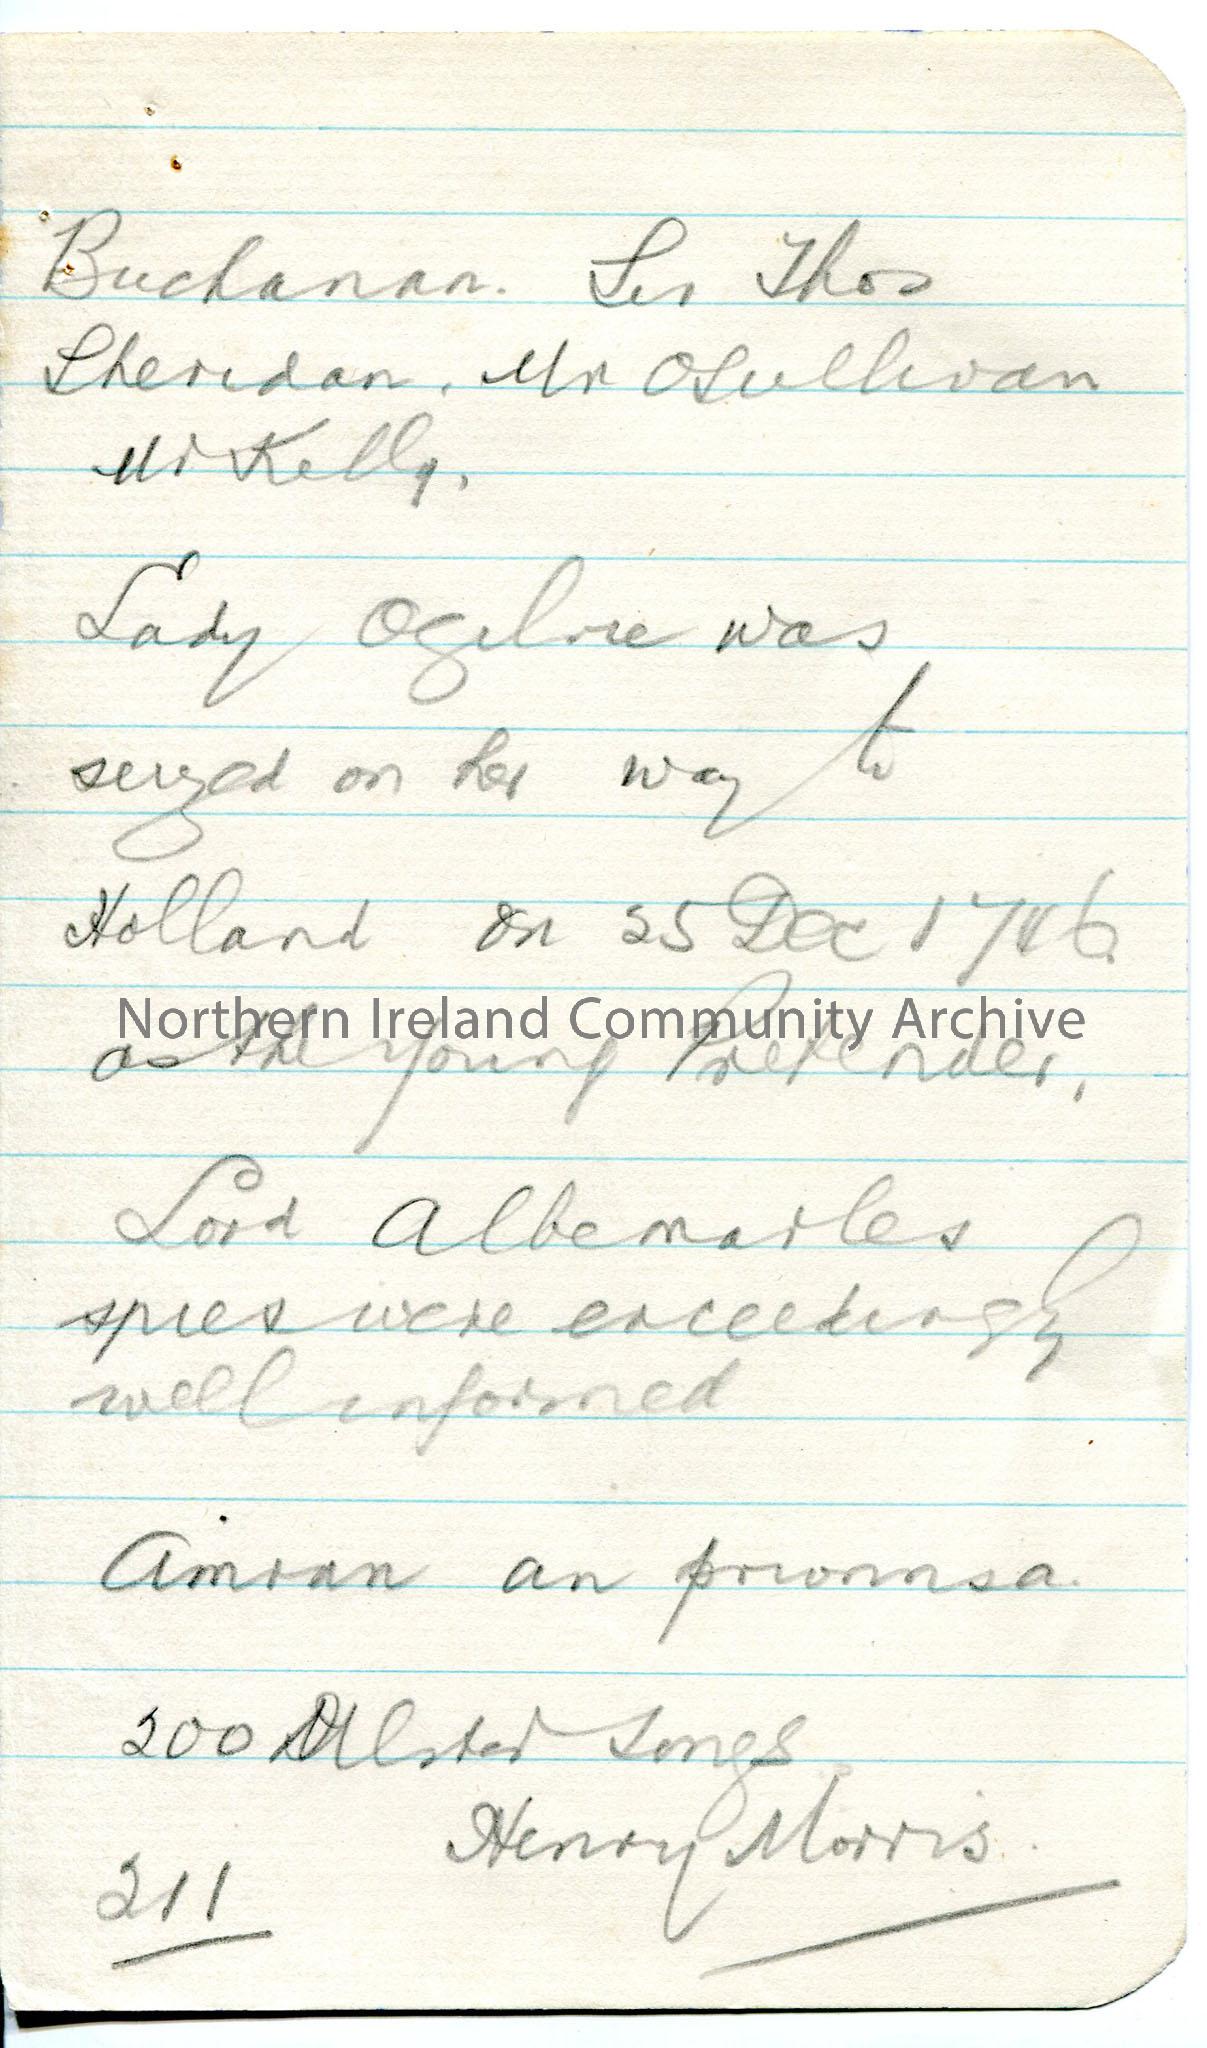 Buchanan. Sir Thos
Sheridan. Mr OSullivan
Mr Kelly.
Lady Ogilvie was
seized on her way to
Holland on 25 Dec 1746
Northern Ireland Community Archive
as the Young Pretender,
Lord Albemarles
spies were exceedingly
well informed
Amran an prionnsa.
200 Ulster Songs
Henry Morris.
211